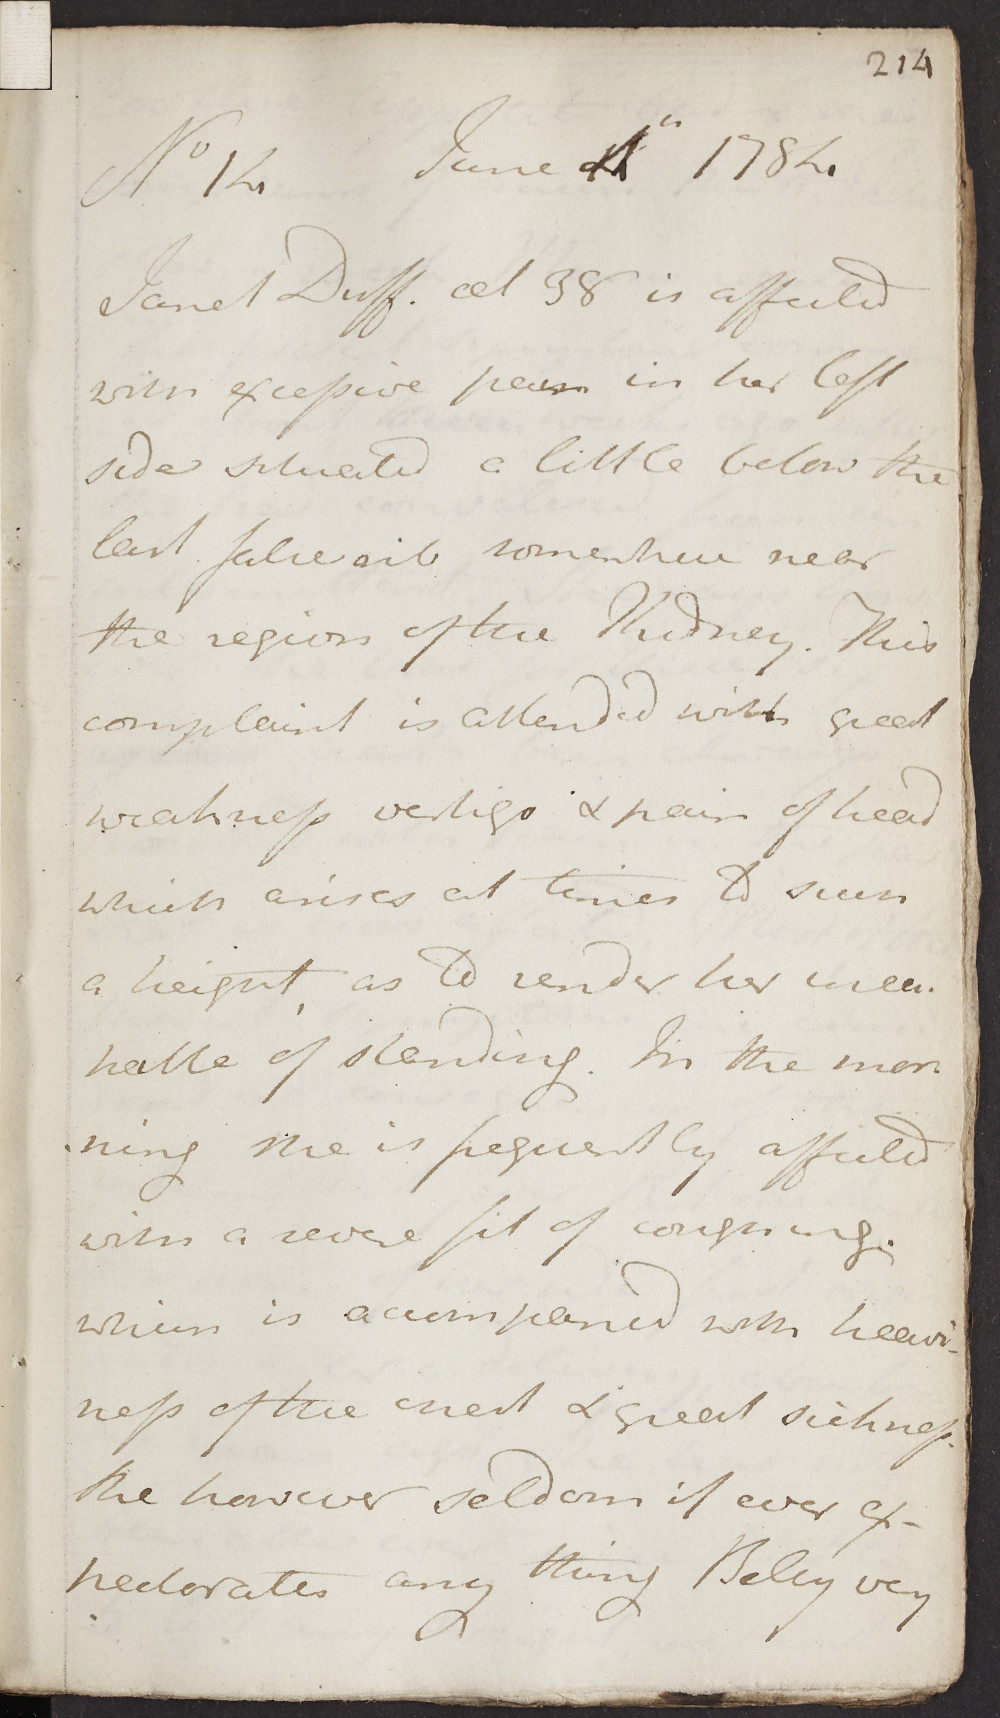 214
No 14 June 4th 1784
Janet Duff. aet 38 is affected
with excessive pain in her left
side situated a little below the
last false rib somewhere near
the region of the Kidney. This
complaint is attended with great
weakness vertigo & pain of head
which arises at times to such
a height, as to render her inca-
pable of standing. In the mor
ning she is frequently affected
with a severe fit of coughing.
which is accompanied with heavi-
ness of the chest & great sickness.
She however seldom if ever ex-
pectorates any thing Belly very